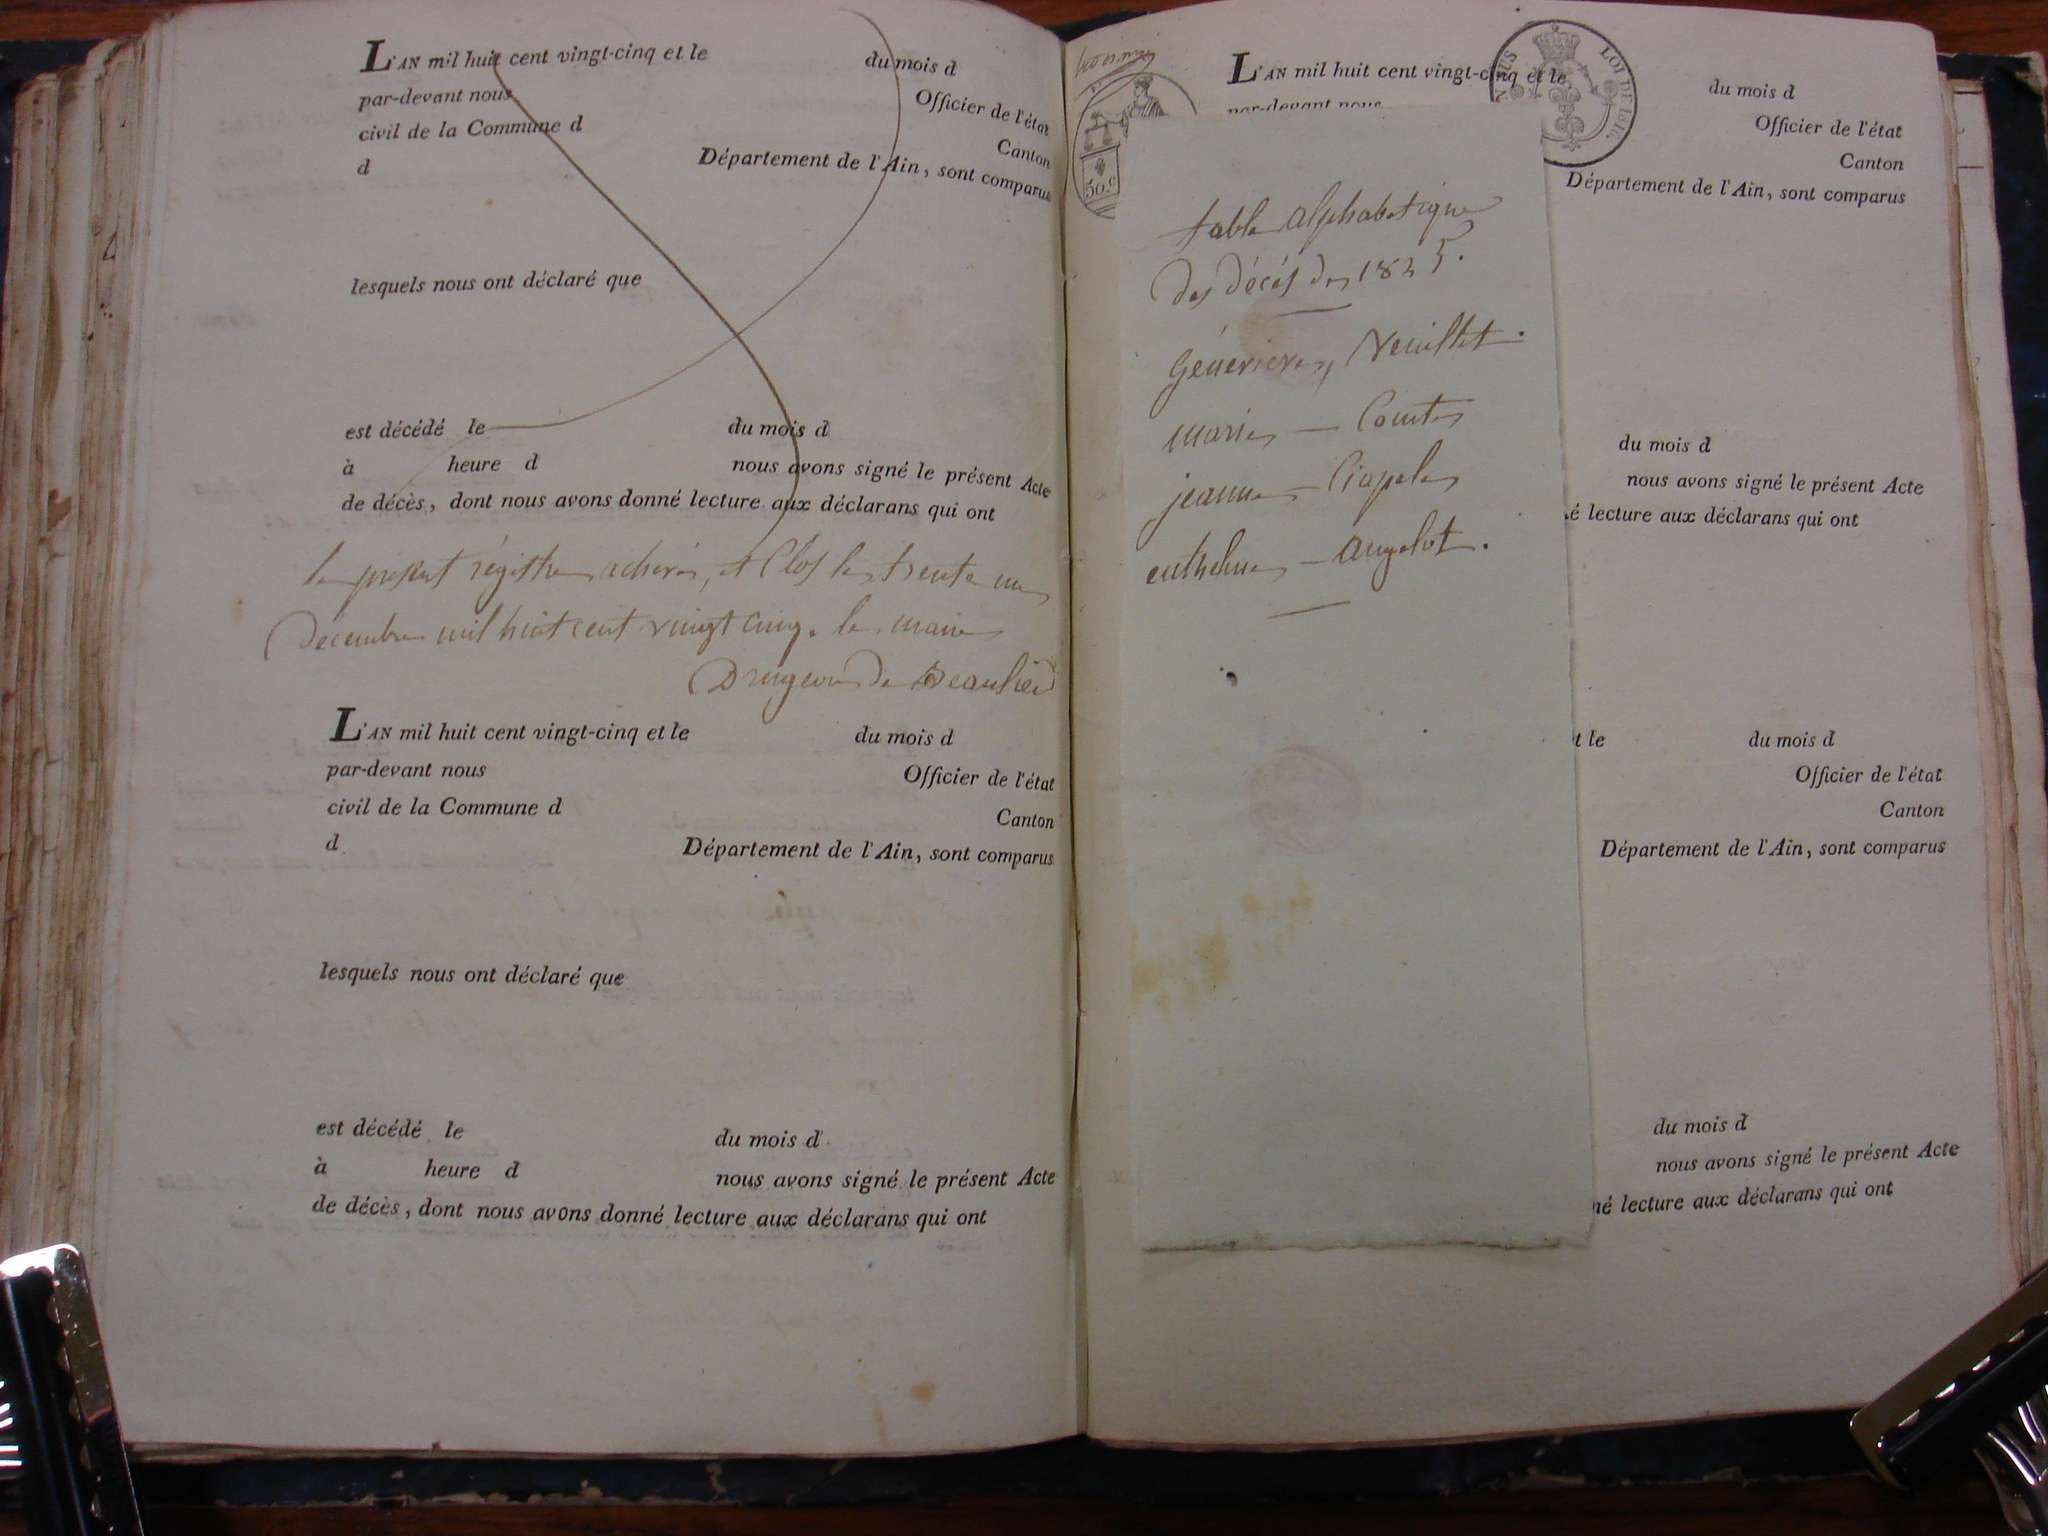 L'AN mil huit cent vingt-cinq et le du mois d
par-devant nous Officier de l'état
civil de la Commune d Canton
d Département de l'Ain, sont comparus
lesquels nous ont déclaré que
est décédé le du mois d
à heure d nous avons signé le présent Acte
de décès, dont nous avons donné lecture aux déclarans qui ont
le présent régistre achevé, et Clos le trente un
Décembre mil huit cent vingt cinq. le maire
Drugeon De Beaulieu
L'AN mil huit cent vingt-cinq et le du mois d
par-devant nous Officier de l'état
civil de la Commune d Canton
d Département de l'Ain, sont comparus
lesquels nous ont déclaré que
est décédé le du mois d
à heure d nous avons signé le présent Acte
de décès, dont nous avons donné lecture aux déclarans qui ont
50.c
LOI DE 1816.
L'AN mil huit cent vingt-cinq et le du mois d
par-devant nous Officier de l'état
Canton
Département de l'Ain, sont comparus
table alphabétique
des décés de 1825.
Généviève, Veuillet.
marie – Comte
jeanne –
– angelot.
du mois d
nous avons signé le présent Acte
é lecture aux déclarans qui ont
t le du mois d
Officier de l'état
Canton
Département de l'Ain, sont comparus
du mois d
nous avons signé le présent Acte
né lecture aux déclarans qui ont